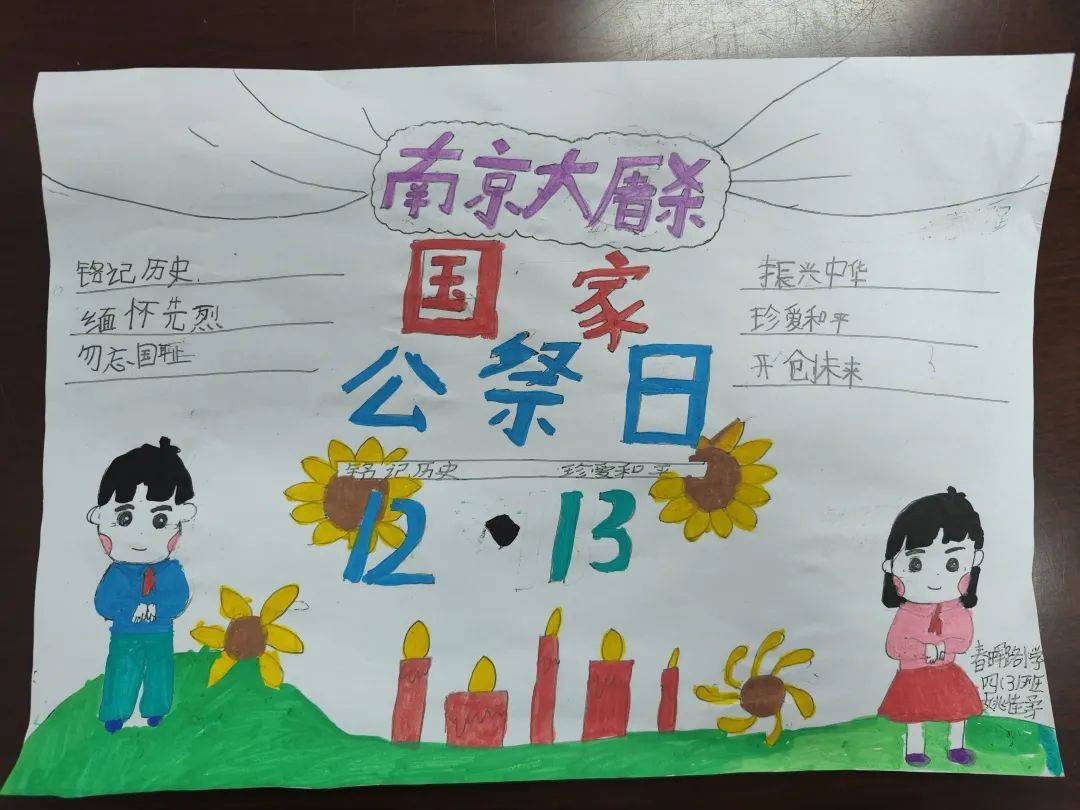 南京大屠杀
国家
公祭日
铭记历史
缅怀先烈
勿忘国耻
振兴中华
珍爱和平
开创未来
铭记历史 珍爱和平
12·13
春晖路小学
四(3)班
姚佳